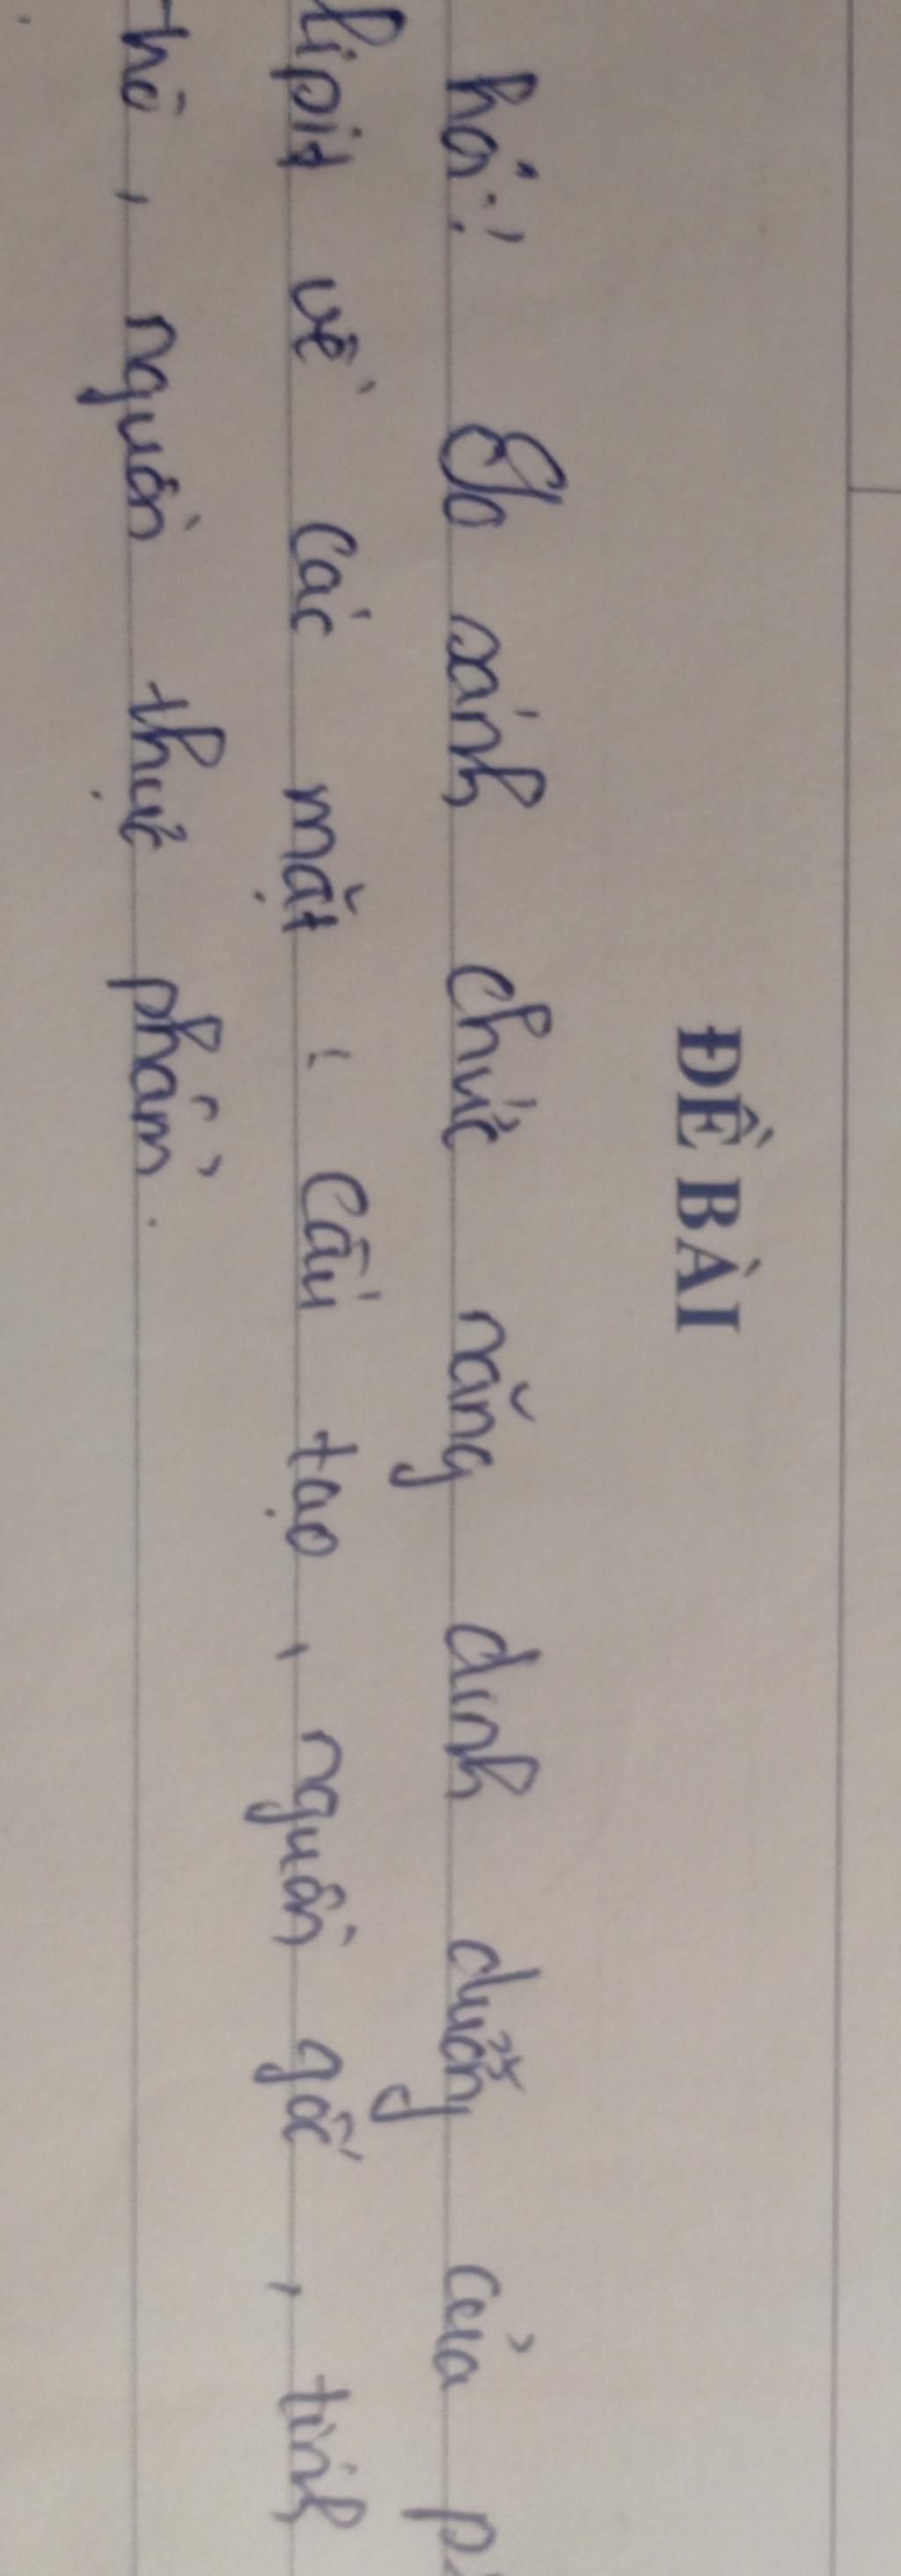 ĐỀ BÀI
hỏi: So sánh chức năng dinh dưỡng của
lipit về các mặt: Cấu tạo, nguồn gốc, tính
thô, nguồn thực phẩm.